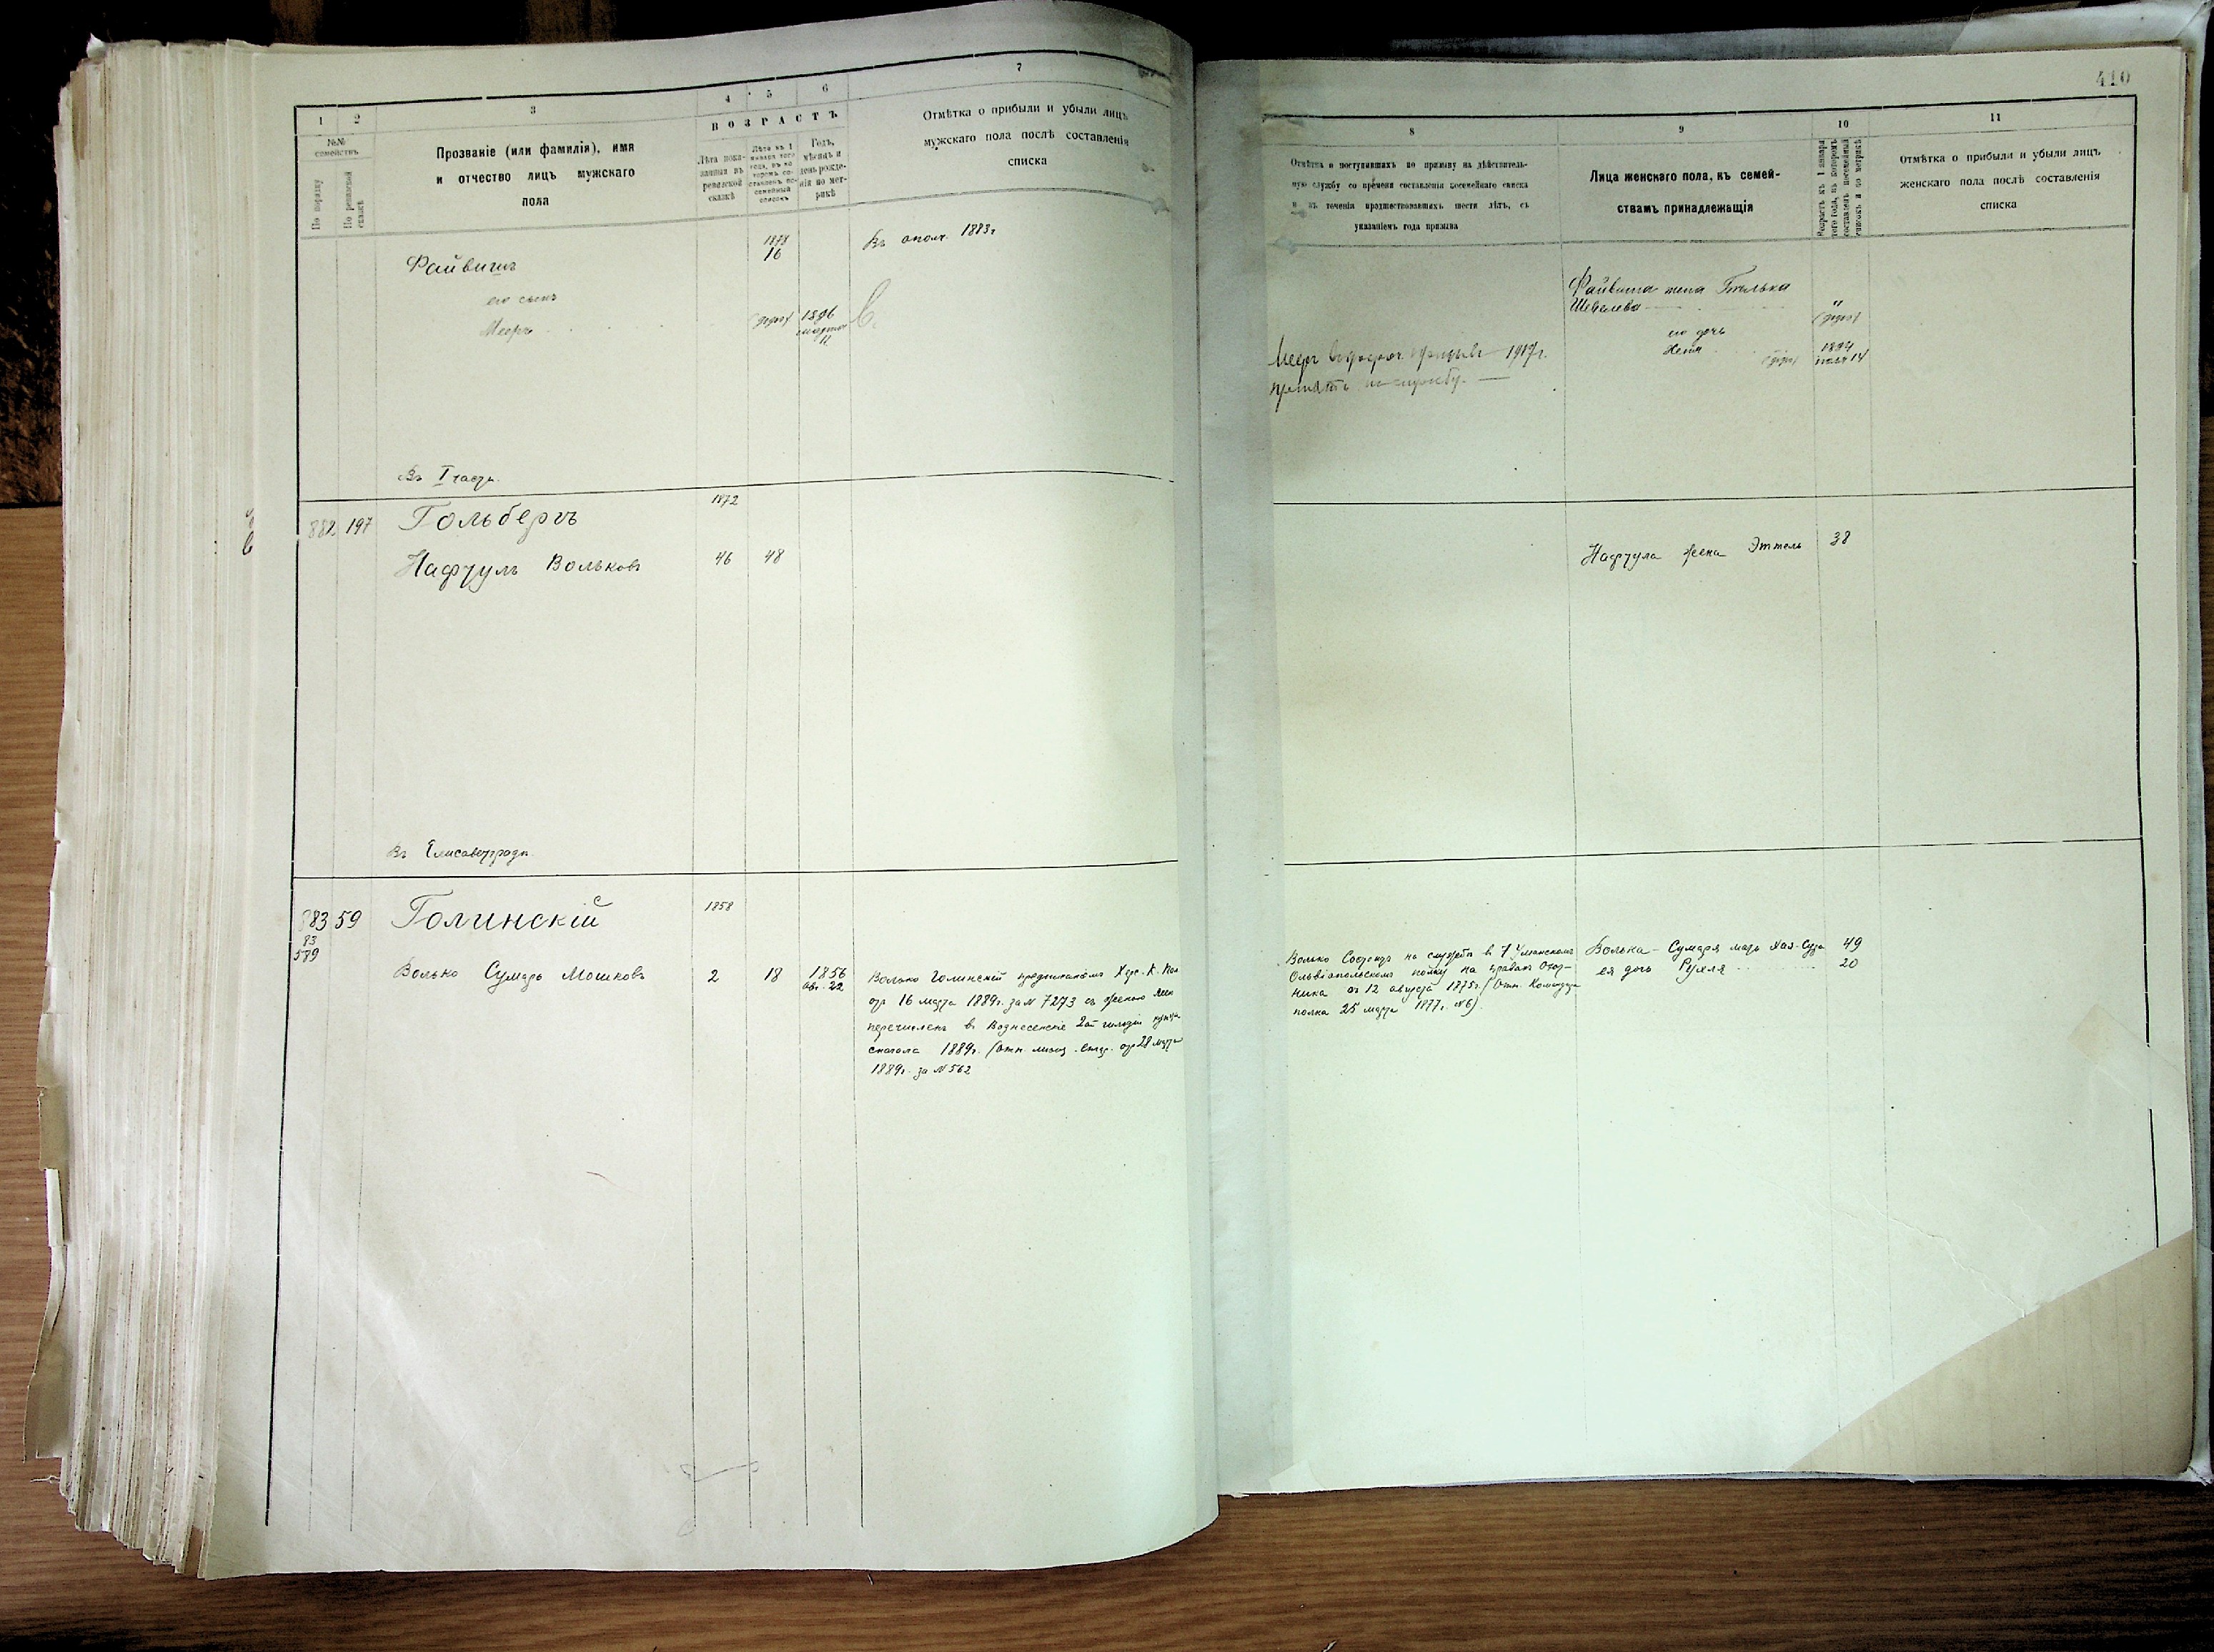 410
1 2 3 4 5 6 7
№№ семействъ
По порядку
По ревизской сказкѣ
Прозваніе (или фамилія), имя
и отчество лицъ мужскаго
пола
ВОЗРАСТЪ
Лѣта пока-
занныя въ
ревизской
сказкѣ
Лѣта къ 1
января того
года, въ ко
торомъ со-
ставленъ по-
семейный
списокъ
Годъ,
мѣсяцъ и
день рожде-
нія по мет-
рикѣ
Отмѣтка о прибыли и убыли лицъ
мужскаго пола послѣ составленія
списка
8 9 10 11
Отмѣтка о поступившихъ по призыву на дѣйствитель-
ную службу со времени составленія посемейнаго списка
и въ теченіи предшествовавшихъ шести лѣтъ, съ
указаніемъ года призыва
Лица женскаго пола, къ семей-
ствамъ принадлежащія
Возрастъ къ 1 января
того года, въ которомъ
составленъ посемейный
списокъ и по метрикѣ
Отмѣтка о прибыли и убыли лицъ
женскаго пола послѣ составленія
списка
Файвишъ
1878
16
Въ ополч. 1883г
его сынъ
Мееръ
1896
марта
11
Мееръ 1917г.
принятъ на службу.
Файвиша жена
Шевелева "
ея дочь
Хеня 1894
іюля 14
Въ I части.
882 197 Гольбергъ 1872
Нафтулъ Вольковъ 46 48
Нафтула жена Эттель 38
Въ Елисаветградѣ.
883 59 Голинскій 1858
83
589
Волько Сумеръ Мошковъ 2 18 1856
авг. 22
Волько Голинскій предписаніемъ Херс. К. Пал
отъ 16 марта 1889г. за № 7273 съ женою
перечисленъ въ Вознесенскіе 2ой гильдіи купцы
сначала 1889г. (отн. отъ 28 марта
1889г. за № 562
Волько Состоитъ на службѣ въ 7 Уланскомъ
Ольвіопольскомъ полку на правахъ Охот-
ника съ 12 августа 1875г. (Отн. Командира
полка 25 марта 1877г. №6).
Волька-Сумеря мать Хая-Сура 49
ея дочь Рухля 20